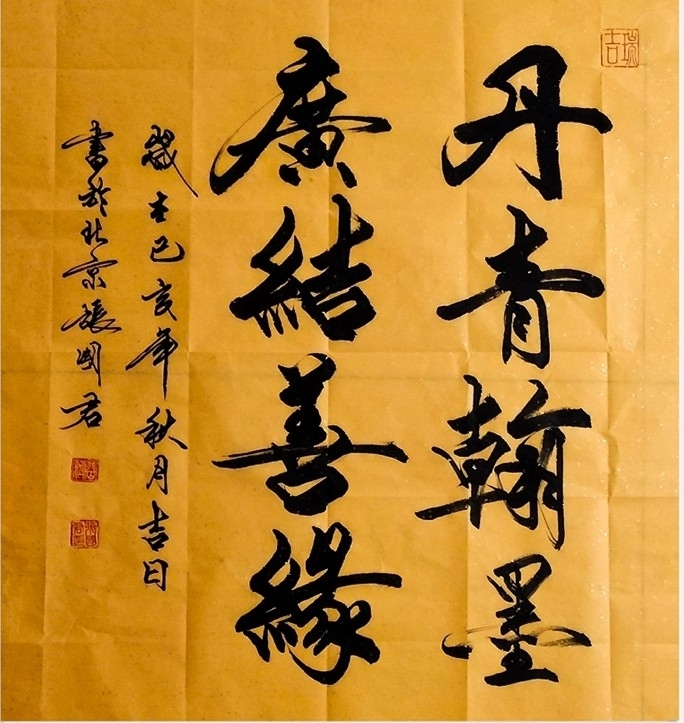 丹青翰墨
廣結善緣
歲在己亥年秋月吉日
書於北京張國君